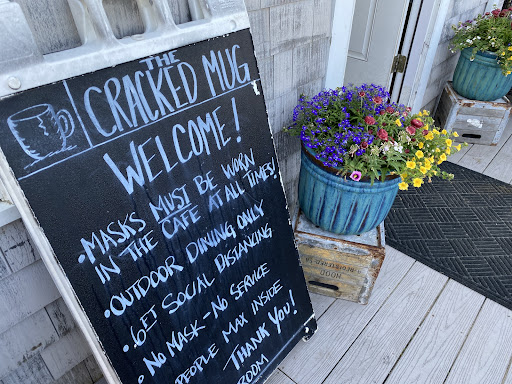 THE
CRACKED MUG
WELCOME!
•MASKS MUST BE WORN
IN THE CAFE AT ALL TIMES!
•OUTDOOR DINING ONLY
•6FT SOCIAL DISTANCING
•NO MASK - NO SERVICE
PEOPLE MAX INSIDE
THANK YOU!
ROOM
HOOD